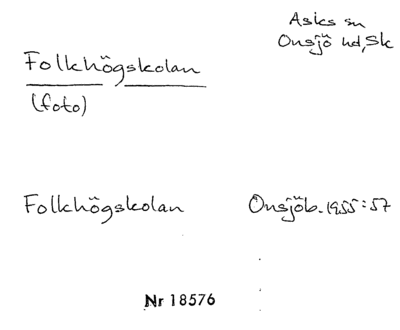 Asks sn
Onsjö hd, Sk
Folkhögskolan
(foto)
Folkhögskolan Onsjöb. 1955:57
Nr 18576